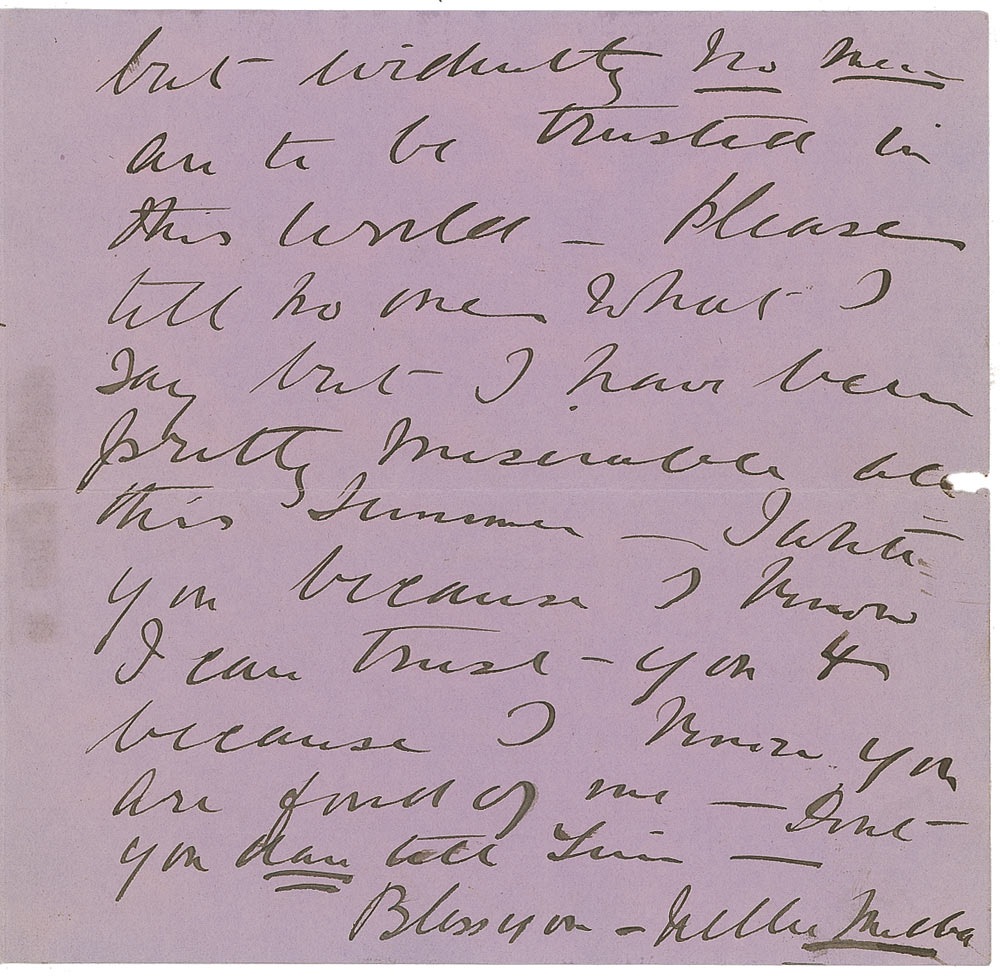 but evidently no men
are to be trusted in
this world – please
tell no one what I
say but I have been
pretty miserable all
this summer – I write
you because I know
I can trust you &
because I know you
are fond of me – Dont
you dare tell Sim –
Bless you – Nellie Melba